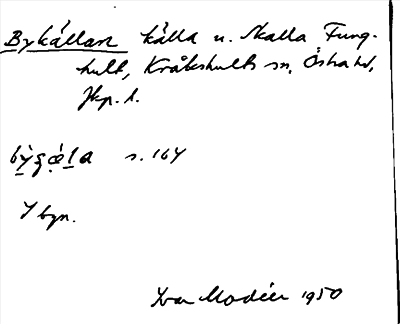 Bykällan källa u. Skalla Fung-
hult, Kråkshults sn, Östra hd,
Jkp. l.
s. 164
I byn.
Ivar Modéer 1950